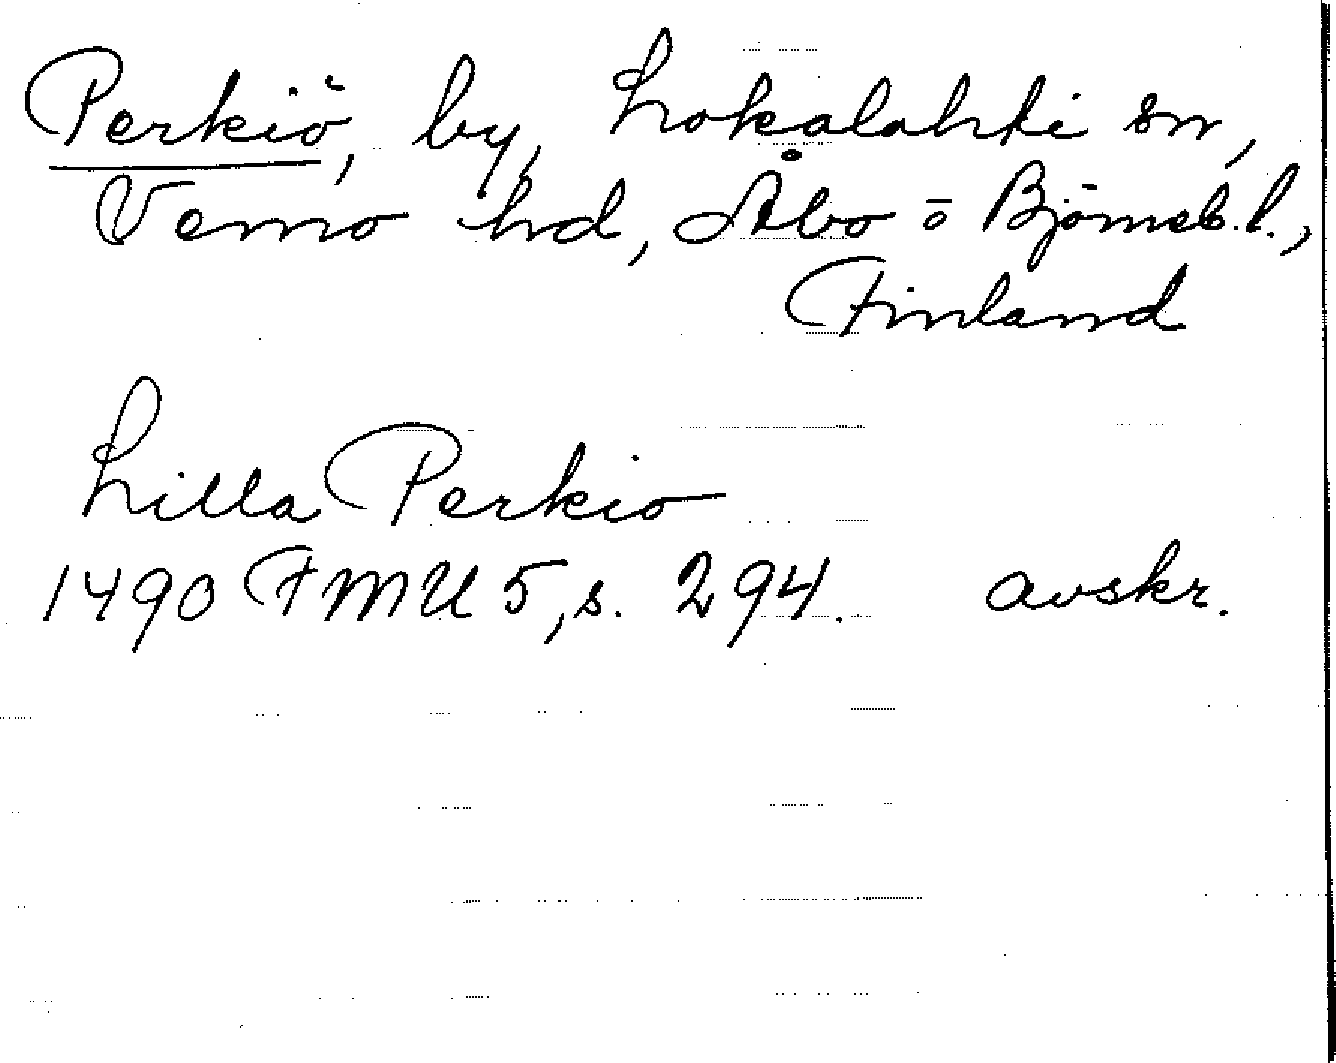 Perkiö, by, Lokalahti sn,
Vemo hd, Åbo o Björneb.l.,
Finland
Lilla Perkio
1490 FMU 5, s. 294. avskr.